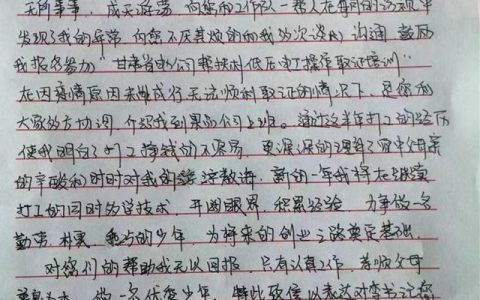 无所事事，成天游荡，向您和工作队一帮人在每间的访项中
发现了我的异常，向您不厌其烦的和我多次谈心、沟通，鼓励
我报名参加"甘肃省电公司帮扶村低压电工操作取证培训"
在因疫情原因未能成行无法顺利取证的情况下，是您和
大家多方协调，介绍我到公司上班。通过这半年打工的经历
使我明白了打工挣钱的不容易，更深深的理解了家中父母亲
的辛酸和时时对我的谆谆教诲，新的一年我将在继续
打工的同时多学技术，开阔眼界，积累经验，力争做一名
勤劳、朴素、我的少年，为将来的创业之路奠定基础。
对您们的帮助我无以回报，只有认真工作，孝顺父母
做一名优秀少年，特此致信以表达对您